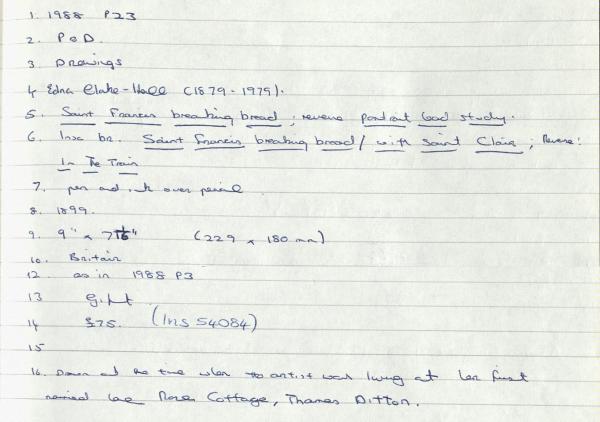 1. 1988 P23
2. P & D.
3. Drawings
4. Edna Clarke-Hall (1879-1979).
5. Saint Francis breaking bread; reverse portrait head study.
6. Insc br. Saint Francis breaking bread / with Saint Clair; Reverse:
In The Train
7. pen and ink over pencil
8. 1899.
9. 9" x 7 1/16" (229 x 180 mm)
10. Britain
12. as in 1988 P3
13 Gift
14 £75. (Ins 54084)
15
16. Drawn at the time when the artist was living at her first
married home Rose Cottage, Thames Ditton.